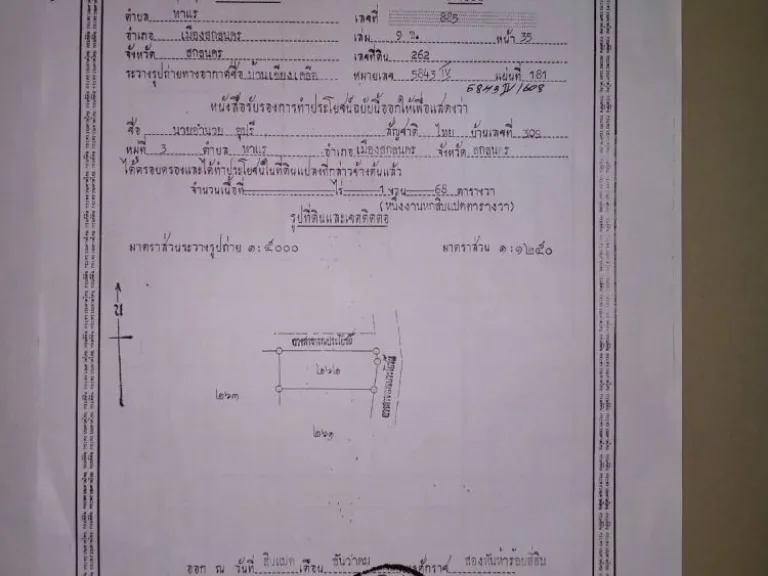 ตำบล ท่าแร่ เลขที่ 885
อำเภอ เมืองสกลนคร เล่ม 9 ข. หน้า 35
จังหวัด สกลนคร เลขที่ดิน 262
ระวางรูปถ่ายทางอากาศชื่อ บ้านเชียงเครือ หมายเลข 5843 IV แผ่นที่ 181
5843 IV/608
หนังสือรับรองการทำประโยชน์ฉบับนี้ออกให้เพื่อแสดงว่า
ชื่อ นายอำนวย อุปรี สัญชาติ ไทย บ้านเลขที่ 309
หมู่ที่ 3 ตำบล ท่าแร่ อำเภอ เมืองสกลนคร จังหวัด สกลนคร
ได้ครอบครองและได้ทำประโยชน์ในที่ดินแปลงที่กล่าวข้างต้นแล้ว
จำนวนเนื้อที่ ไร่ 1 งาน 68 ตารางวา
(หนึ่งงานหกสิบแปดตารางวา)
รูปที่ดินและเขตติดต่อ
มาตราส่วนระวางรูปถ่าย ๑:๕๐๐๐ มาตราส่วน ๑:๑๒๕๐
น
ทางสาธารณประโยชน์
๒๖๒
๒๖๓
๒๖๑
ออก ณ วันที่ สิบแปด เดือน ธันวาคม สองพันห้าร้อยสี่สิบ